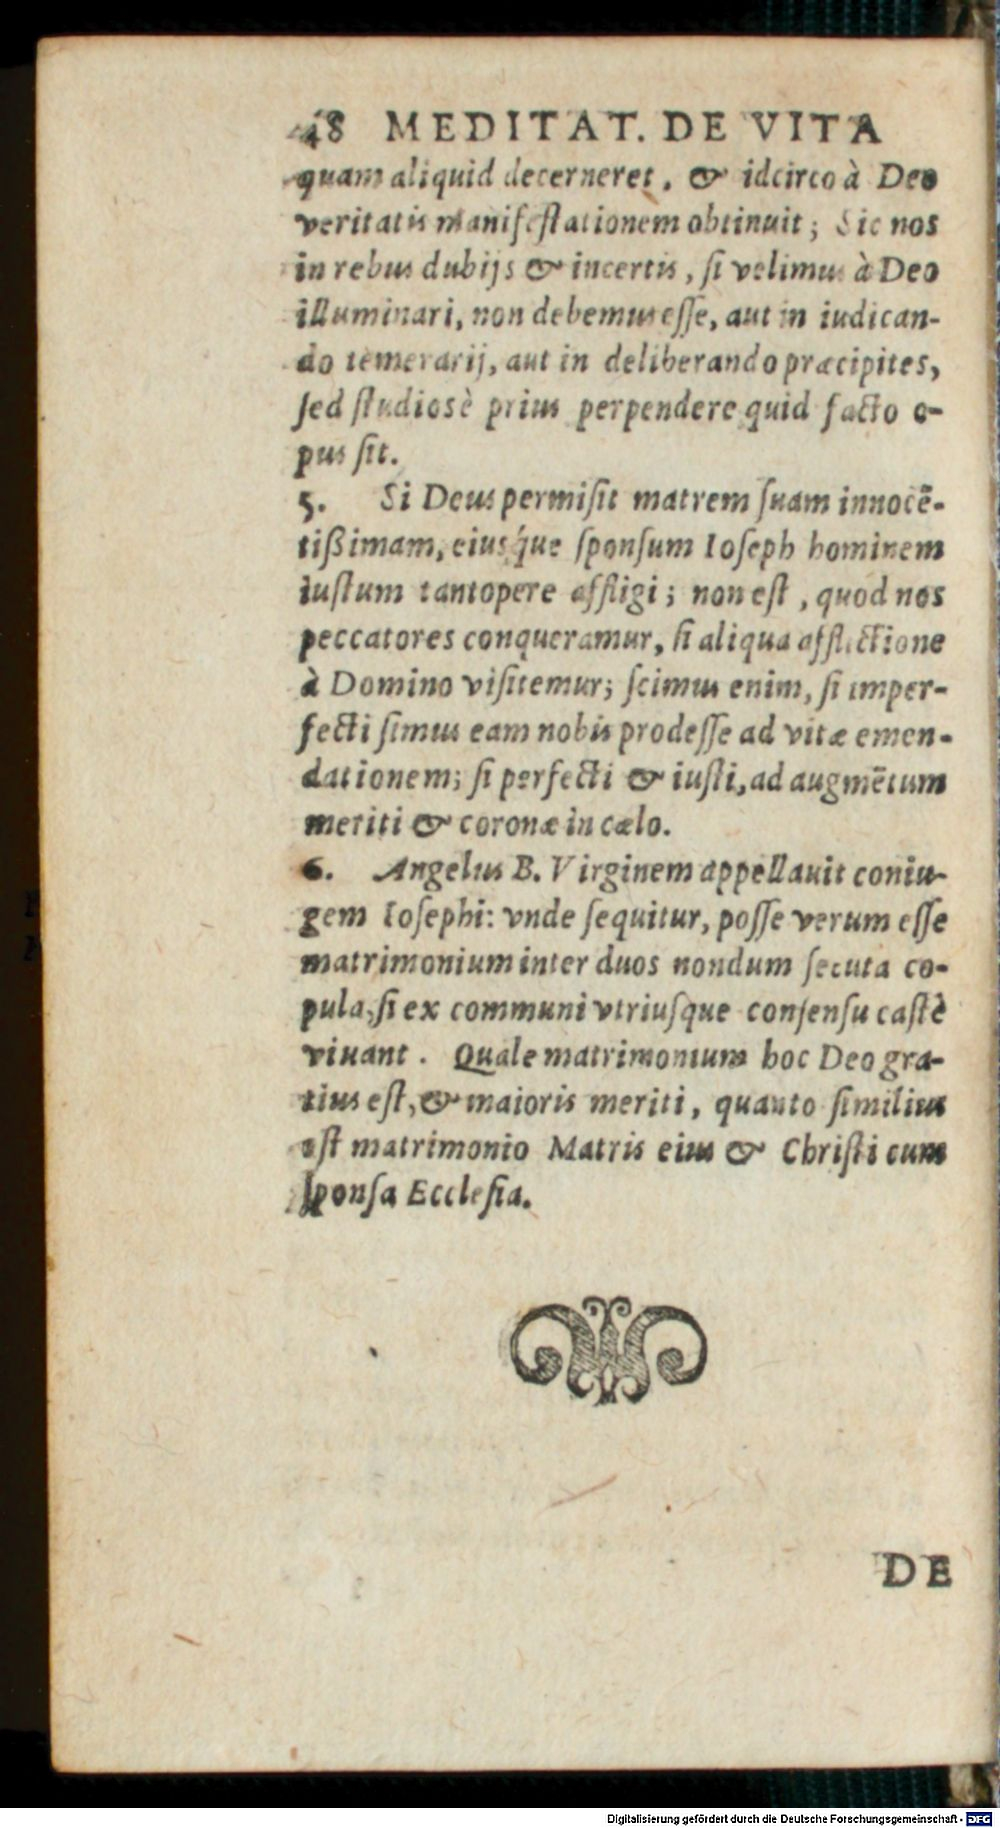 48 MEDITAT. DE VITA
quam aliquid decerneret, & idcirco à Deo
veritatis manifestationem obtinuit; Sic nos
in rebus dubijs & incertis, si velimus à Deo
illuminari, non debemus esse, aut in iudican-
do temerarij, aut in deliberando præcipites,
sed studiosè prius perpendere quid facto o-
pus sit.
5. Si Deus permisit matrem suam innocē-
tißimam, eiusq́ue sponsum Ioseph hominem
iustum tantopere affligi; non est, quod nos
peccatores conqueramur, si aliqua afflictione
à Domino visitemur; scimus enim, si imper-
fecti simus eam nobis prodesse ad vitæ emen-
dationem; si perfecti & iusti, ad augmētum
meriti & coronæ in cælo.
6. Angelus B. Virginem appellauit coniu-
gem Iosephi: vnde sequitur, posse verum esse
matrimonium inter duos nondum secuta co-
pula, si ex communi vtriusque consensu castè
viuant. Quale matrimonium hoc Deo gra-
tius est, & maioris meriti, quanto similius
est matrimonio Matris eius & Christi cum
sponsa Ecclesia.
DE
Digitalisierung gefördert durch die Deutsche Forschungsgemeinschaft - DFG